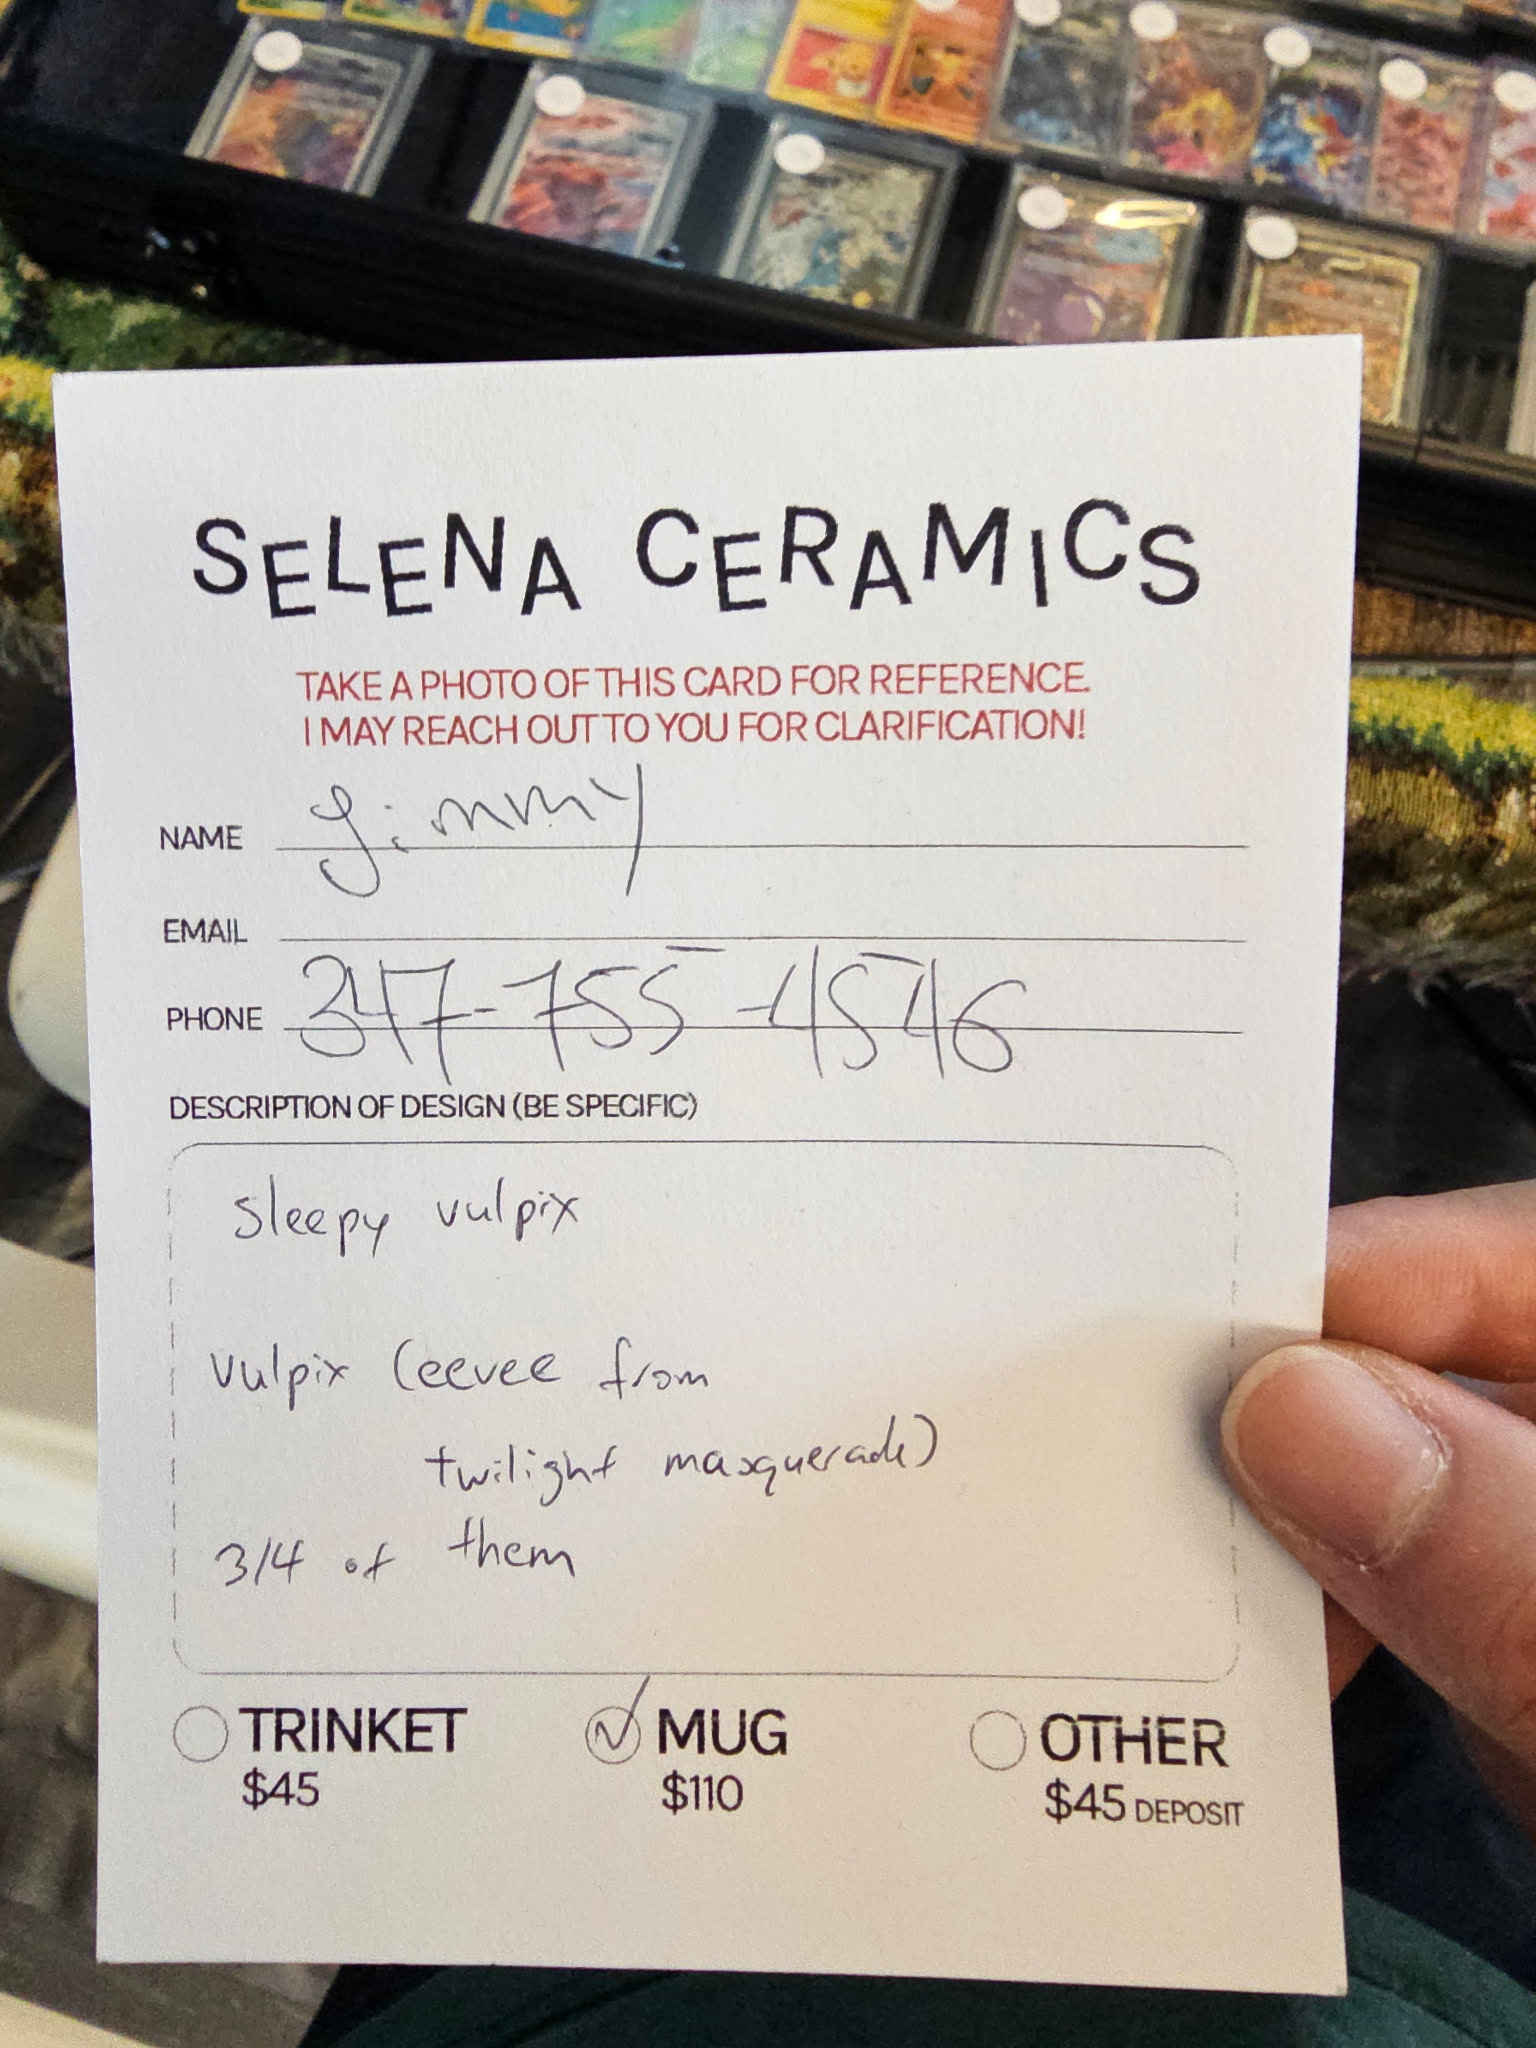 SELENA CERAMICS
TAKE A PHOTO OF THIS CARD FOR REFERENCE.
I MAY REACH OUT TO YOU FOR CLARIFICATION!
NAME Jimmy
EMAIL
PHONE 347-755-4546
DESCRIPTION OF DESIGN (BE SPECIFIC)
sleepy vulpix
vulpix (eevee from
twilight masquerade)
3/4 of them
TRINKET MUG OTHER
$45 $110 $45 DEPOSIT